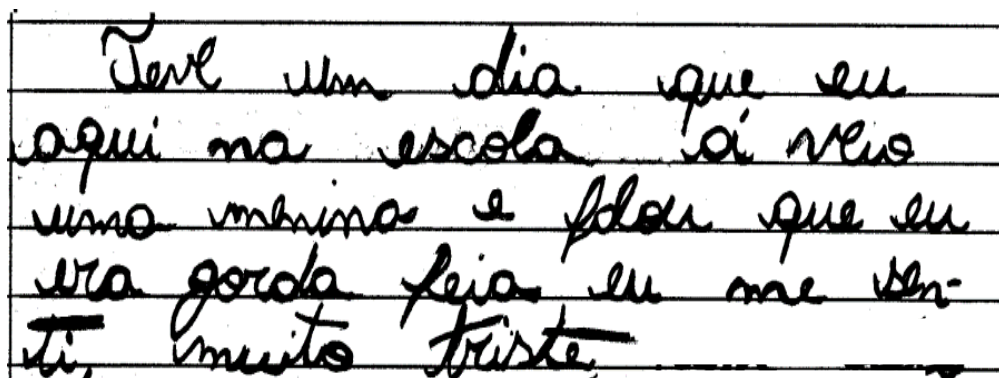 Teve um dia que eu
aqui na escola aí veio
uma menina e falou que eu
era gorda feia eu me sen-
ti, muito triste